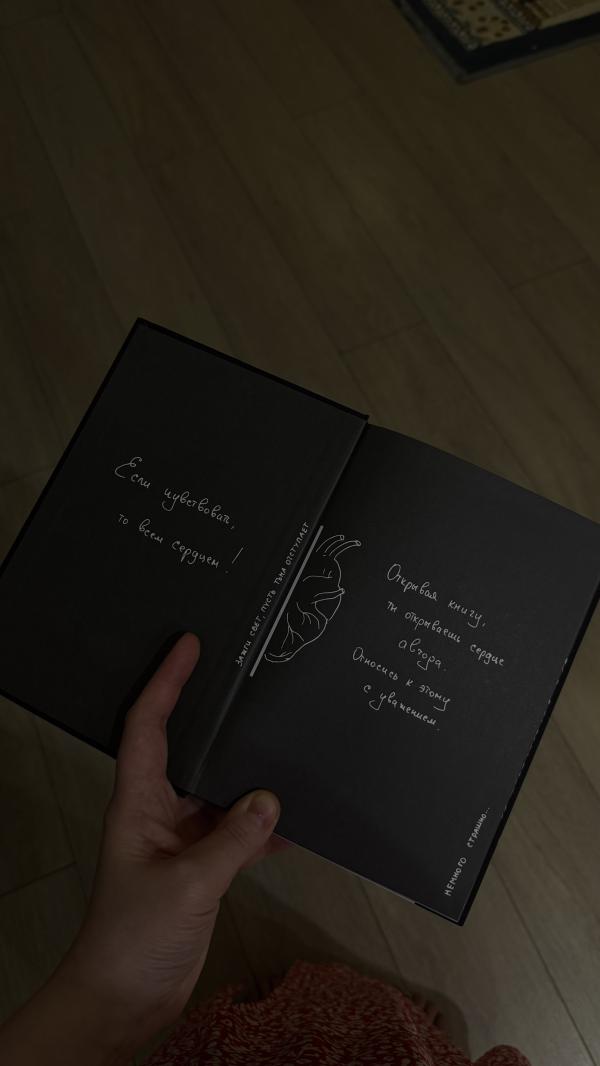 Если чувствовать,
то всем сердцем!
ЗАЖГИ СВЕТ, ПУСТЬ ТЬМА ОТСТУПАЕТ
Открывая книгу,
ты открываешь сердце
автора.
Относись к этому
с уважением.
НЕМНОГО СТРАШНО...